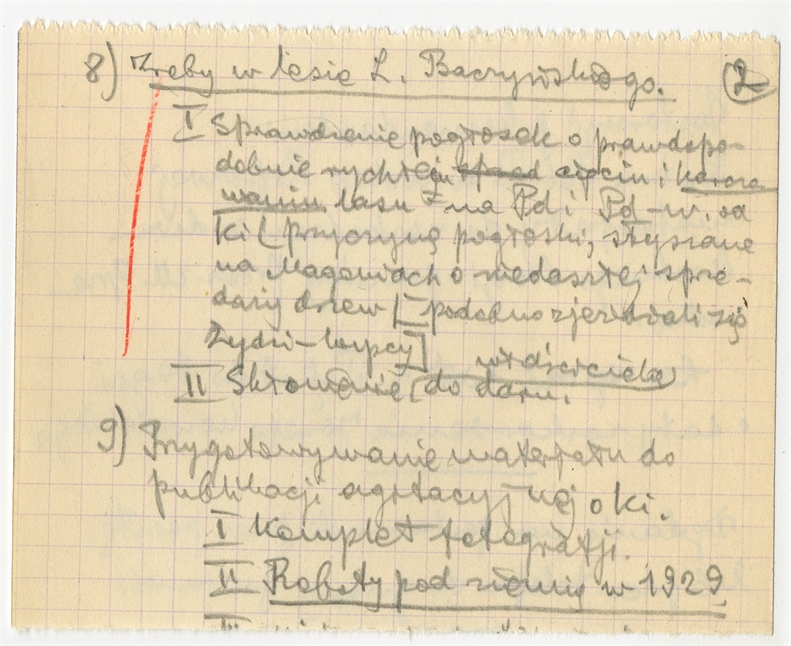 8) Zręby w lesie L. Baczyńskiego. (2)
I Sprawdzenie pogłosek o prawdopo-
dobnie rychłem cięciu i karczo
waniu lasu na Pd i Pd-w. od
Ki (przyczyną pogłoski, słyszane
na Magoniach o niedaszłej sprze-
daży drzew [podobno zjeżdżali się
Żydzi-kupcy]
II Skłonienie [właściciela] do daru.
9) Przygotowywanie materjału do
publikacji agitacyjnej o ki.
I Komplet fotografji.
II Roboty pod ziemią w 1929